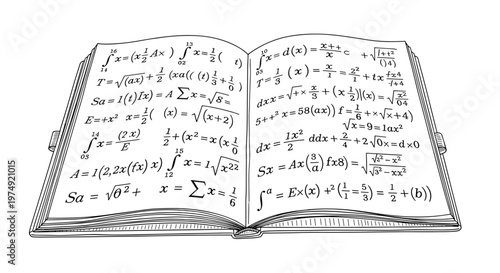 ∫₁₄¹⁶ x = (x ½ A× ) ∫₀₂¹³ x = ½ ( t)
T = √(ax) + ½ (xa(( (t) ⅓ + 1/0 )
Sa = 1(t)fx) = A ∑x = √8 =
E = +x² x = ½ (x) = √(x + 2)
∫₀₃¹⁴ x = (2 x)/E ½ + (x² = x (x 1/0
A = 1(2,2x(fx) x) ∫₁₂¹⁵ x = 1√x²²
Sa = √θ² + x = ∑x = 1/6
∫₀₅¹⁰ x = d(x) = x++/x c + √(1++²/()4)
T = ⅓ (x) = x/1 = 2²/1 + tx fx4/√+4
dxx = √+× x/3 + (x ½)|(x) = √(x²/04)
5++² x = 58(ax)) f = 1/6 + √x + 4)
√x = 9 = 1ax²
dx = 1x²/2 ddx + 4/2 + 2√0x = d×0
Sx = Ax(3/a) fx8) = √(x² - x²)/√(3² - xx²)
∫ᵃ = E×(x) + ²(1/1 = 5/3) = ½ + (b))
#1974921015